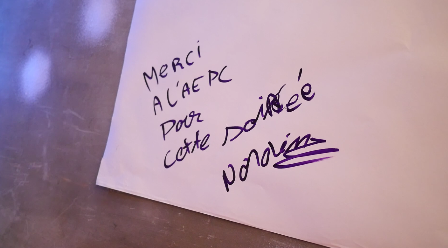 Merci
A l'AEPC
Pour
cette soirée
Nordin